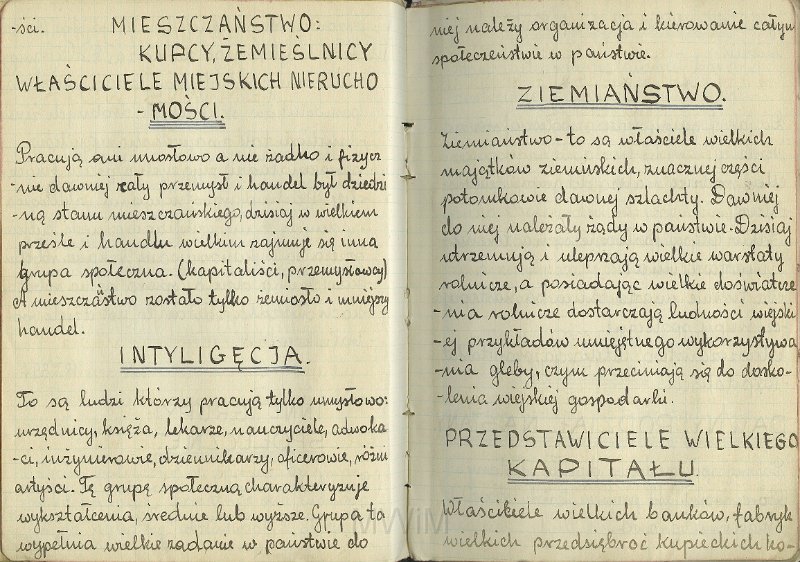 -ści. MIESZCZAŃSTWO:
KUPCY, ŻEMIEŚLNICY
WŁAŚCICIELE MIEJSKICH NIERUCHO
-MOŚCI.
Pracują oni umosłowo a nie żadko i fizycz
-nie dawniej cały przemysł i handel był dziedzi
-ną stanu mieszczańskiego, dzisiaj w wielkiem
prześle i handlu wielkim zajmuje się inna
grupa społeczna. (kapitaliści, przemysłowcy)
A mieszczaństwo zostało tylko żemiosło i mniejszy
handel.
INTYLIGĘCJA.
To są ludzi którzy pracują tylko umysłowo:
urzędnicy, księża, lekarze, nauczyciele, adwoka
-ci, inżynierowie, dziennikarzy, oficerowie, różni
artyści. Tę grupę społeczną charakteryzuje
wykształcenia, średnie lub wyższe. Grupa ta
wypełnia wielkie zadanie w państwie do
niej należy organizacja i kierowanie całym
społeczeństwie w państwie.
ZIEMIAŃSTWO.
Ziemiaństwo - to są właściele wielkich
majątków ziemińskich, znacznej części
potomkowie dawnej szlachty. Dawniej
do niej należały żądy w państwie. Dzisiaj
utrzemują i ulepszają wielkie warstaty
rolnicze, a posiadając wielkie doświatcze
-nia rolnicze dostarczają ludności wiejski
-ej przykładów umiejętnego wykorzystywa
-nia gleby, czym przeciniają się do dosko-
-lenia wiejskiej gospodarki.
PRZEDSTAWICIELE WIELKIEGO
KAPITAŁU.
Właścibiele wielkich banków, fabryk
wielkich przedsiębroć kupieckich ko-
MWiM